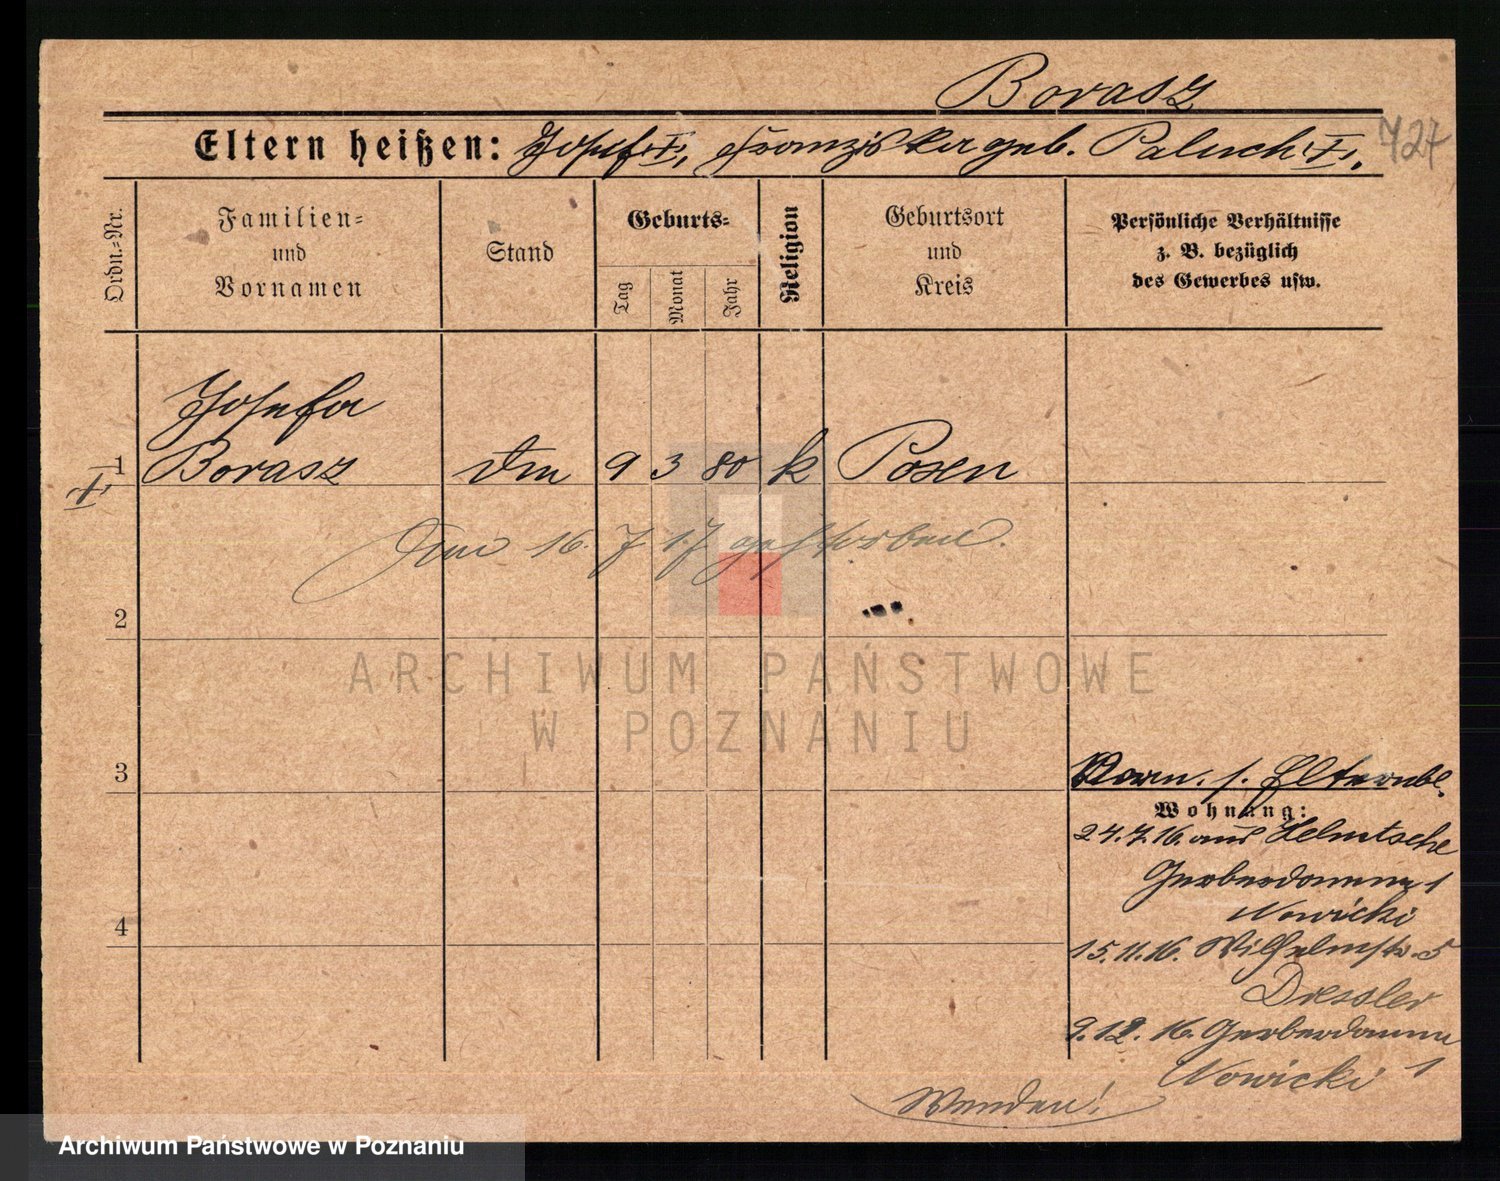 Borasz
Eltern heißen: Josef I, Franziska geb. Paluch I.
727
Ordn.=Nr.
Familien=
und
Vornamen
Stand
Geburts=
Tag
Monat
Jahr
Religion
Geburtsort
und
Kreis
Persönliche Verhältnisse
z. B. bezüglich
des Gewerbes usw.
Josefa
1 Borasz 9 3 80 k Posen
Am 16. 7. 17. gestorben.
2
ARCHIWUM PAŃSTWOWE
W POZNANIU
3
Vorm. s. Elternbl.
Wohnung:
24.7.16. aus
Gerberdamm 1
Nowicki
4
15.11.16. Wilhelmstr. 5
Dressler
9.12.16. Gerberdamm
1
Nowicki
Wenden!
Archiwum Państwowe w Poznaniu